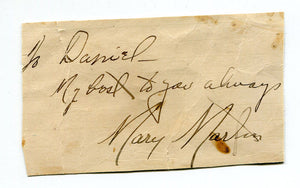 To Daniel—
My best to you always
Mary Martin